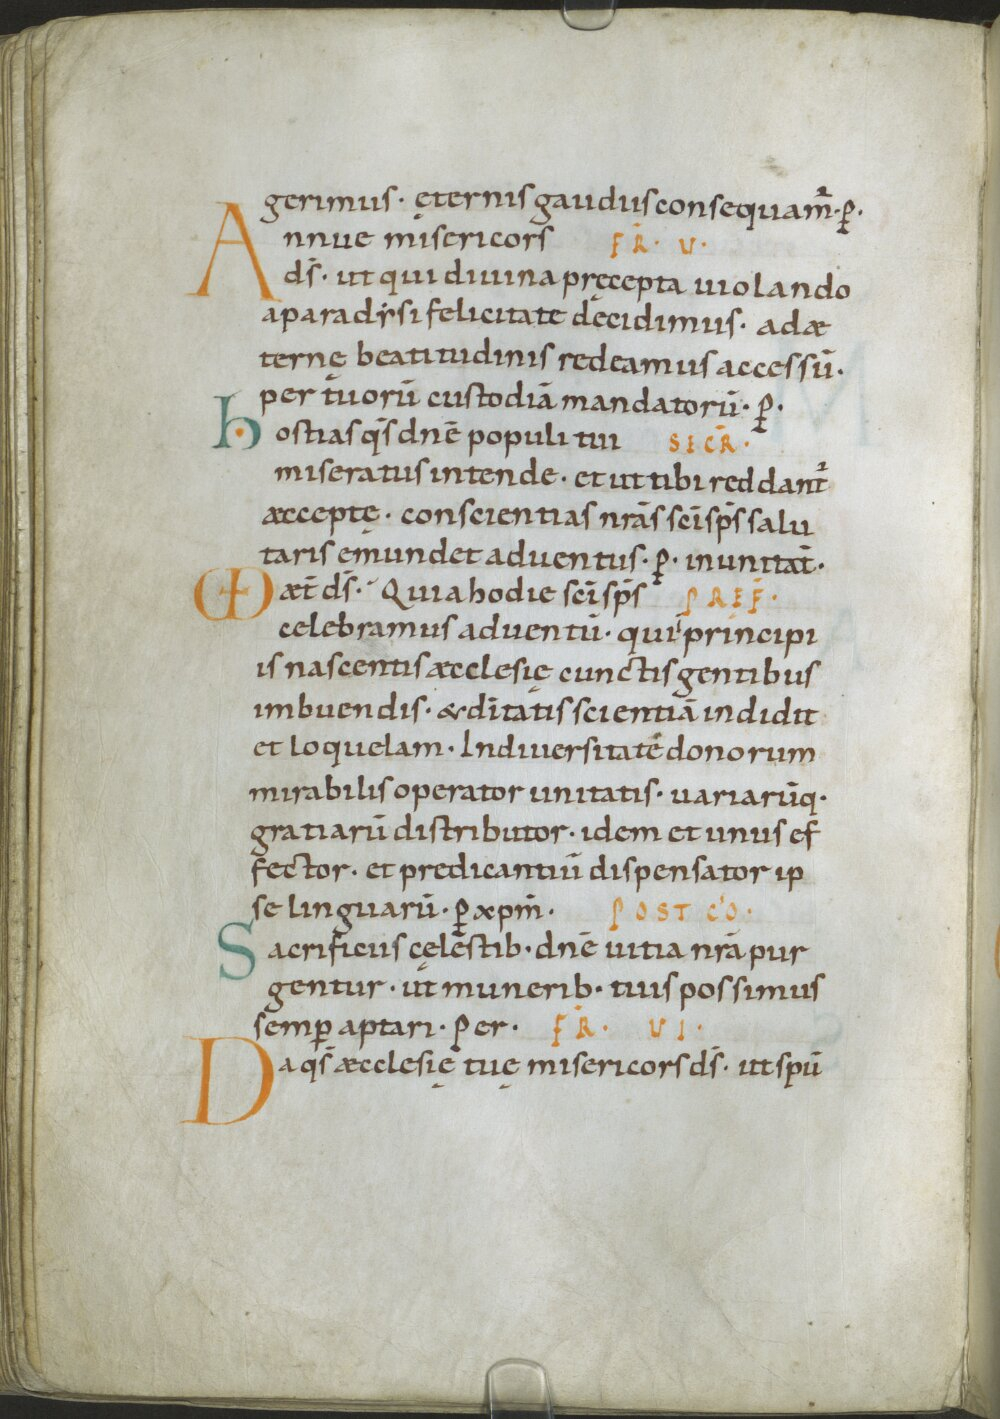 gerimus · ęternis gaudiis consequam̄ · ꝑ ·
Annue misericors FR̄ · V ·
ds̄ · ut qui diuina pręcepta uiolando
aparadẏsi felicitate decidimus · adæ
ternę beatitudinis redeamus accessū ·
per tuorū custodiā mandatorū · ꝑ ·
hostias qs̄ dnē populi tui SECR̄ ·
miseratus intende · et ut tibi reddant̄
æccepte · conscientias nrās scī sps̄ salu
taris emundet aduentus · ꝑ · in unitat̄ ·
VD æt̄ ds̄ · Quia hodie scī sps̄ PREF̄ ·
celebramus aduentū · qui principi
is nascentis æcclesię cunctis gentibus
imbuendis · & ditatis scientiā indidit
et loquelam · In diuersitate donorum
mirabilis operator unitatis · uariarūq ·
gratiarū distributor · idem et unus ef
fector · et predicantiū dispensator ip
se linguarū · ꝑ xpm̄ · POST CO ·
Sacrificiis cęlestib · dnē uitia nrā pur
gentur · ut munerib · tuis possimus
semꝑ aptari · Per · FR̄ · VI ·
Da qs̄ æcclesię tuę misericors ds̄ · ut spū